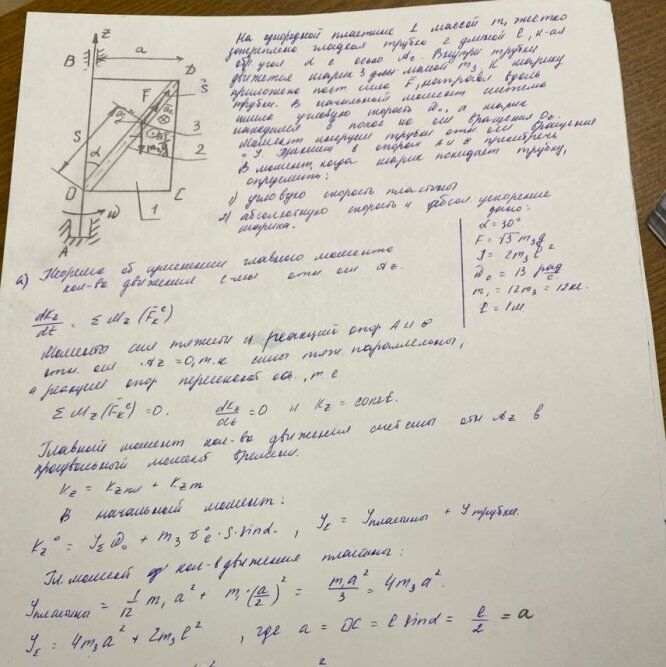 z
B
a
D
F
S
S
α
3
2
m₃g
O
C
1
ω
A
На однородной пластине 1 массой m₁ жестко
закреплена гладкая трубка 2 длиной l,
угол α с осью Az. Внутри трубки
движется шарик 3 массой m₃. К шарику
приложена пост сила F, направл вдоль
трубки. В начальный момент система
имела угловую скорость ω₀, а шарик
находился в покое на оси вращения Oz.
Момент инерции трубки отн оси вращения
= J. Трением в опорах A и B пренебречь
В момент, когда шарик покидает трубку,
определить:
1) угловую скорость пластины
2) абсолютную скорость и абсол. ускорение
шарика.
Дано:
α = 30°
F = √3 m₃g
J = 2m₃l²
ω₀ = 13 рад/с
m₁ = 12m₃ = 12кг.
l = 1м
а) Теорема об изменении главного момента
кол-ва движения с-мы отн оси Az.
dKz/dt = Σ Mz(F̄ₖᵉ)
Моменты сил тяжести и реакций опор A и B
отн. оси Az = 0, т.к силы тяж. параллельны,
а реакции опор пересекают ось, т е
Σ Mz(F̄ₖᵉ) = 0. dKz/dt = 0 и Kz = const.
Главный момент кол-ва движения системы отн Az в
произвольный момент времени.
Kz = Kzпл + Kzm
В начальный момент:
Kz⁰ = J_Σ ω₀ + m₃ v_e⁰ · S · sinα. , J_Σ = Jпластины + Jтрубки
Гл. момент кол-в движения пластины:
Jпластины = 1/12 m₁ a² + m₁ · (a/2)² = m₁a²/3 = 4m₃a².
J_Σ = 4m₃a² + 2m₃l² , где a = OC = l sinα = l/2 = a